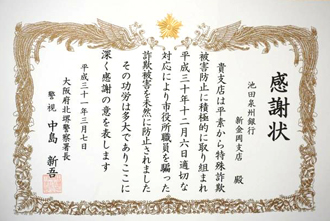 感謝状
池田泉州銀行
新金岡支店 殿
貴支店は平素から特殊詐欺
被害防止に積極的に取り組まれ
平成三十年十二月六日適切な
対応により市役所職員を騙った
詐欺被害を未然に防止されました
その功労は多大でありここに
深く感謝の意を表します
平成三十一年三月七日
大阪府北堺警察署長
警視 中島 新吾